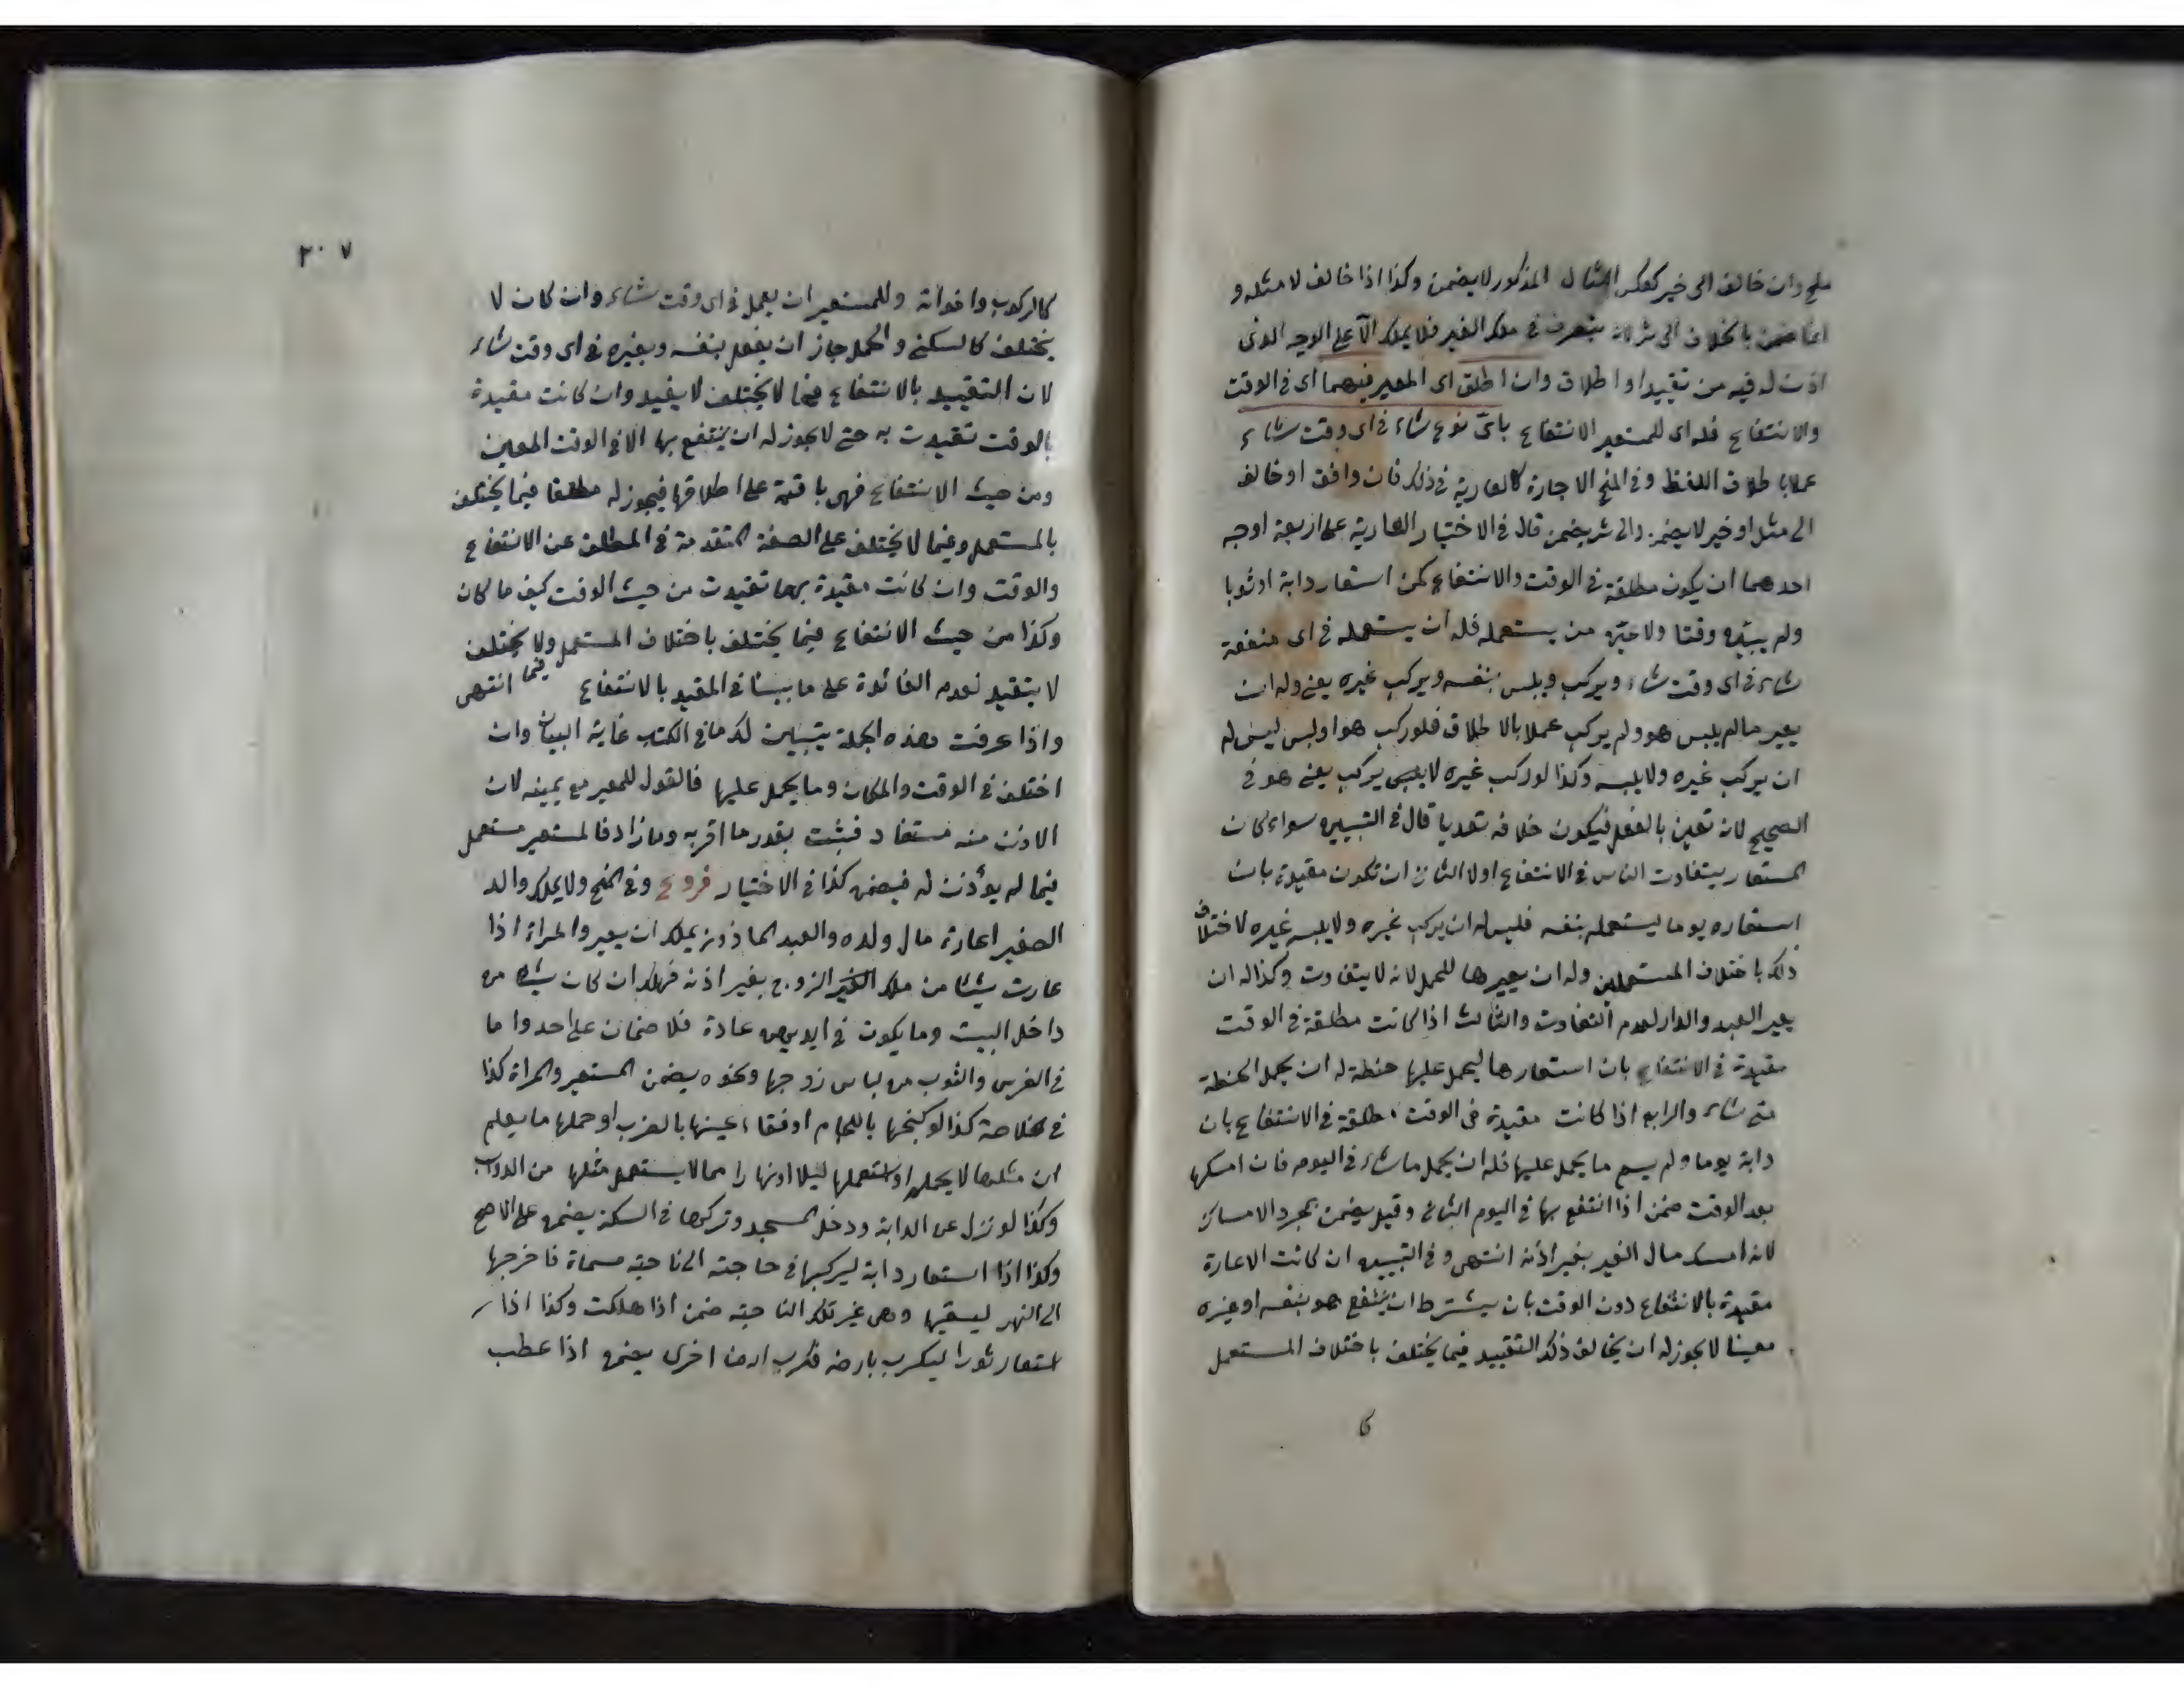 ملح وان خالف الى خير كعكس المثال المذكور لا يضمن وكذا اذا خالف لا مثله و
انما ضمن بالخلاف الى شر لانه يتصرف في ملك الغير فلا يملك الا على الوجه الذي
اذن له فيه من تقييد او اطلاق وان اطلق اى المعير فيهما اى في الوقت
والانتفاع فله اى للمستعير الانتفاع باىّ نوع شاء في اى وقت شاء
عملا باطلاق اللفظ وفي المنح الاجارة كالعارية في ذلك فان وافق او خالف
الى مثل او خير لا يضمن والى شر يضمن قال في الاختيار العارية على اربعة اوجه
احدهما ان يكون مطلقة في الوقت والانتفاع كمن استعار دابة او ثوبا
ولم يبين وقتا ولا عين من يستعمله فله ان يستعمله في اى منفعة
شاء في اى وقت شاء ويركب ويلبس بنفسه ويركب غيره يعني وله ان
يعير ما لم يلبس هو ولم يركب عملا بالاطلاق فلو ركب هو او لبس ليس له
ان يركب غيره ولا يلبسه وكذا لو ركب غيره لا يركب يعني هو في
الصحيح لانه تعين بالفعل فيكون خلافه تعديا قال في التبيين سواء كان
المستعار يتفاوت الناس في الانتفاع او لا الثاني ان تكون مقيدة بان
استعاره يوما ليستعمله بنفسه فليس له ان يركب غيره ولا يلبسه غيره لاختلاف
ذلك باختلاف المستعملين وله ان يعيرها للحمل لانه لا يتفاوت وكذا له ان
يعير العبد والدار لعدم التفاوت والثالث اذا كانت مطلقة في الوقت
مقيدة في الانتفاع بان استعارها ليحمل عليها حنطة له ان يحمل الحنطة
متى شاء والرابع اذا كانت مقيدة في الوقت مطلقة في الانتفاع بان
دابة يوما ولم يسم ما يحمل عليها فله ان يحمل ما شاء في اليوم فان امسكها
بعد الوقت ضمن اذا انتفع بها في اليوم الثاني وقيل يضمن بمجرد الامساك
لانه امسك مال الغير بغير اذنه انتهى وفي التبيين ان كانت الاعارة
مقيدة بالانتفاع دون الوقت بان يشترط ان ينتفع هو بنفسه او غيره
معينا لا يجوز له ان يخالف ذلك التقييد فيما يختلف باختلاف المستعمل
كا
٢٠٧
كالركوب واخواته وللمستعير ان يعمل في اى وقت شاء وان كان لا
يختلف كالسكنى والحمل جاز ان يفعل بنفسه وبغيره في اى وقت شاء
لان التقييد بالانتفاع فيما لا يختلف لا يفيد وان كانت مقيدة
بالوقت تقيدت به حتى لا يجوز له ان ينتفع بها الا في الوقت المعين
ومن حيث الانتفاع فهى باقية على اطلاقها فيجوز له مطلقا فيما يختلف
بالمستعمل وفيما لا يختلف على الصفة المتقدمة في المطلق عن الانتفاع
والوقت وان كانت مقيدة بهما تقيدت من حيث الوقت كيف ما كان
وكذا من حيث الانتفاع فيما يختلف باختلاف المستعمل وفيما لا يختلف
لا يتقيد لعدم الفائدة على ما بينا في المقيد بالانتفاع انتهى
واذا عرفت هذه الجملة يتبين لك ما في الكتب غاية البيان وان
اختلف في الوقت والمكان وما يحمل عليها فالقول للمعير مع يمينه لان
الاذن منه مستفاد فيثبت بقدر ما اقر به وما زاد فالمستعير مستعمل
فيما لم يؤذن له فيضمن كذا في الاختيار فروع وفي المنح ولا يملك والد
الصغير اعارة مال ولده والعبد المأذون يملك ان يعير والمراة اذا
عارت شيئا من ملك الزوج بغير اذنه فهلك ان كان شيئا من
داخل البيت وما يكون في ايديهن عادة فلا ضمان على احد واما
في الفرس والثوب من لباس زوجها ونحوه يضمن المستعير والمراة كذا
في الخلاصة كذا لو كبحها باللجام او فقاء عينها بالضرب او حملها ما يعلم
ان مثلها لا يحملها او استعملها ليلا او نهارا مما لا يستعمل مثلها من الدواب
وكذا لو نزل عن الدابة ودخل المسجد وتركها في السكة يضمن على الاصح
وكذا اذا استعار دابة ليركبها في حاجته الى ناحية مسماة فاخرجها
الى النهر ليسقيها وهى غير تلك الناحية ضمن اذا هلكت وكذا اذا
استعار ثورا ليكرب بارضه فكرب ارضا اخرى يضمن اذا عطب